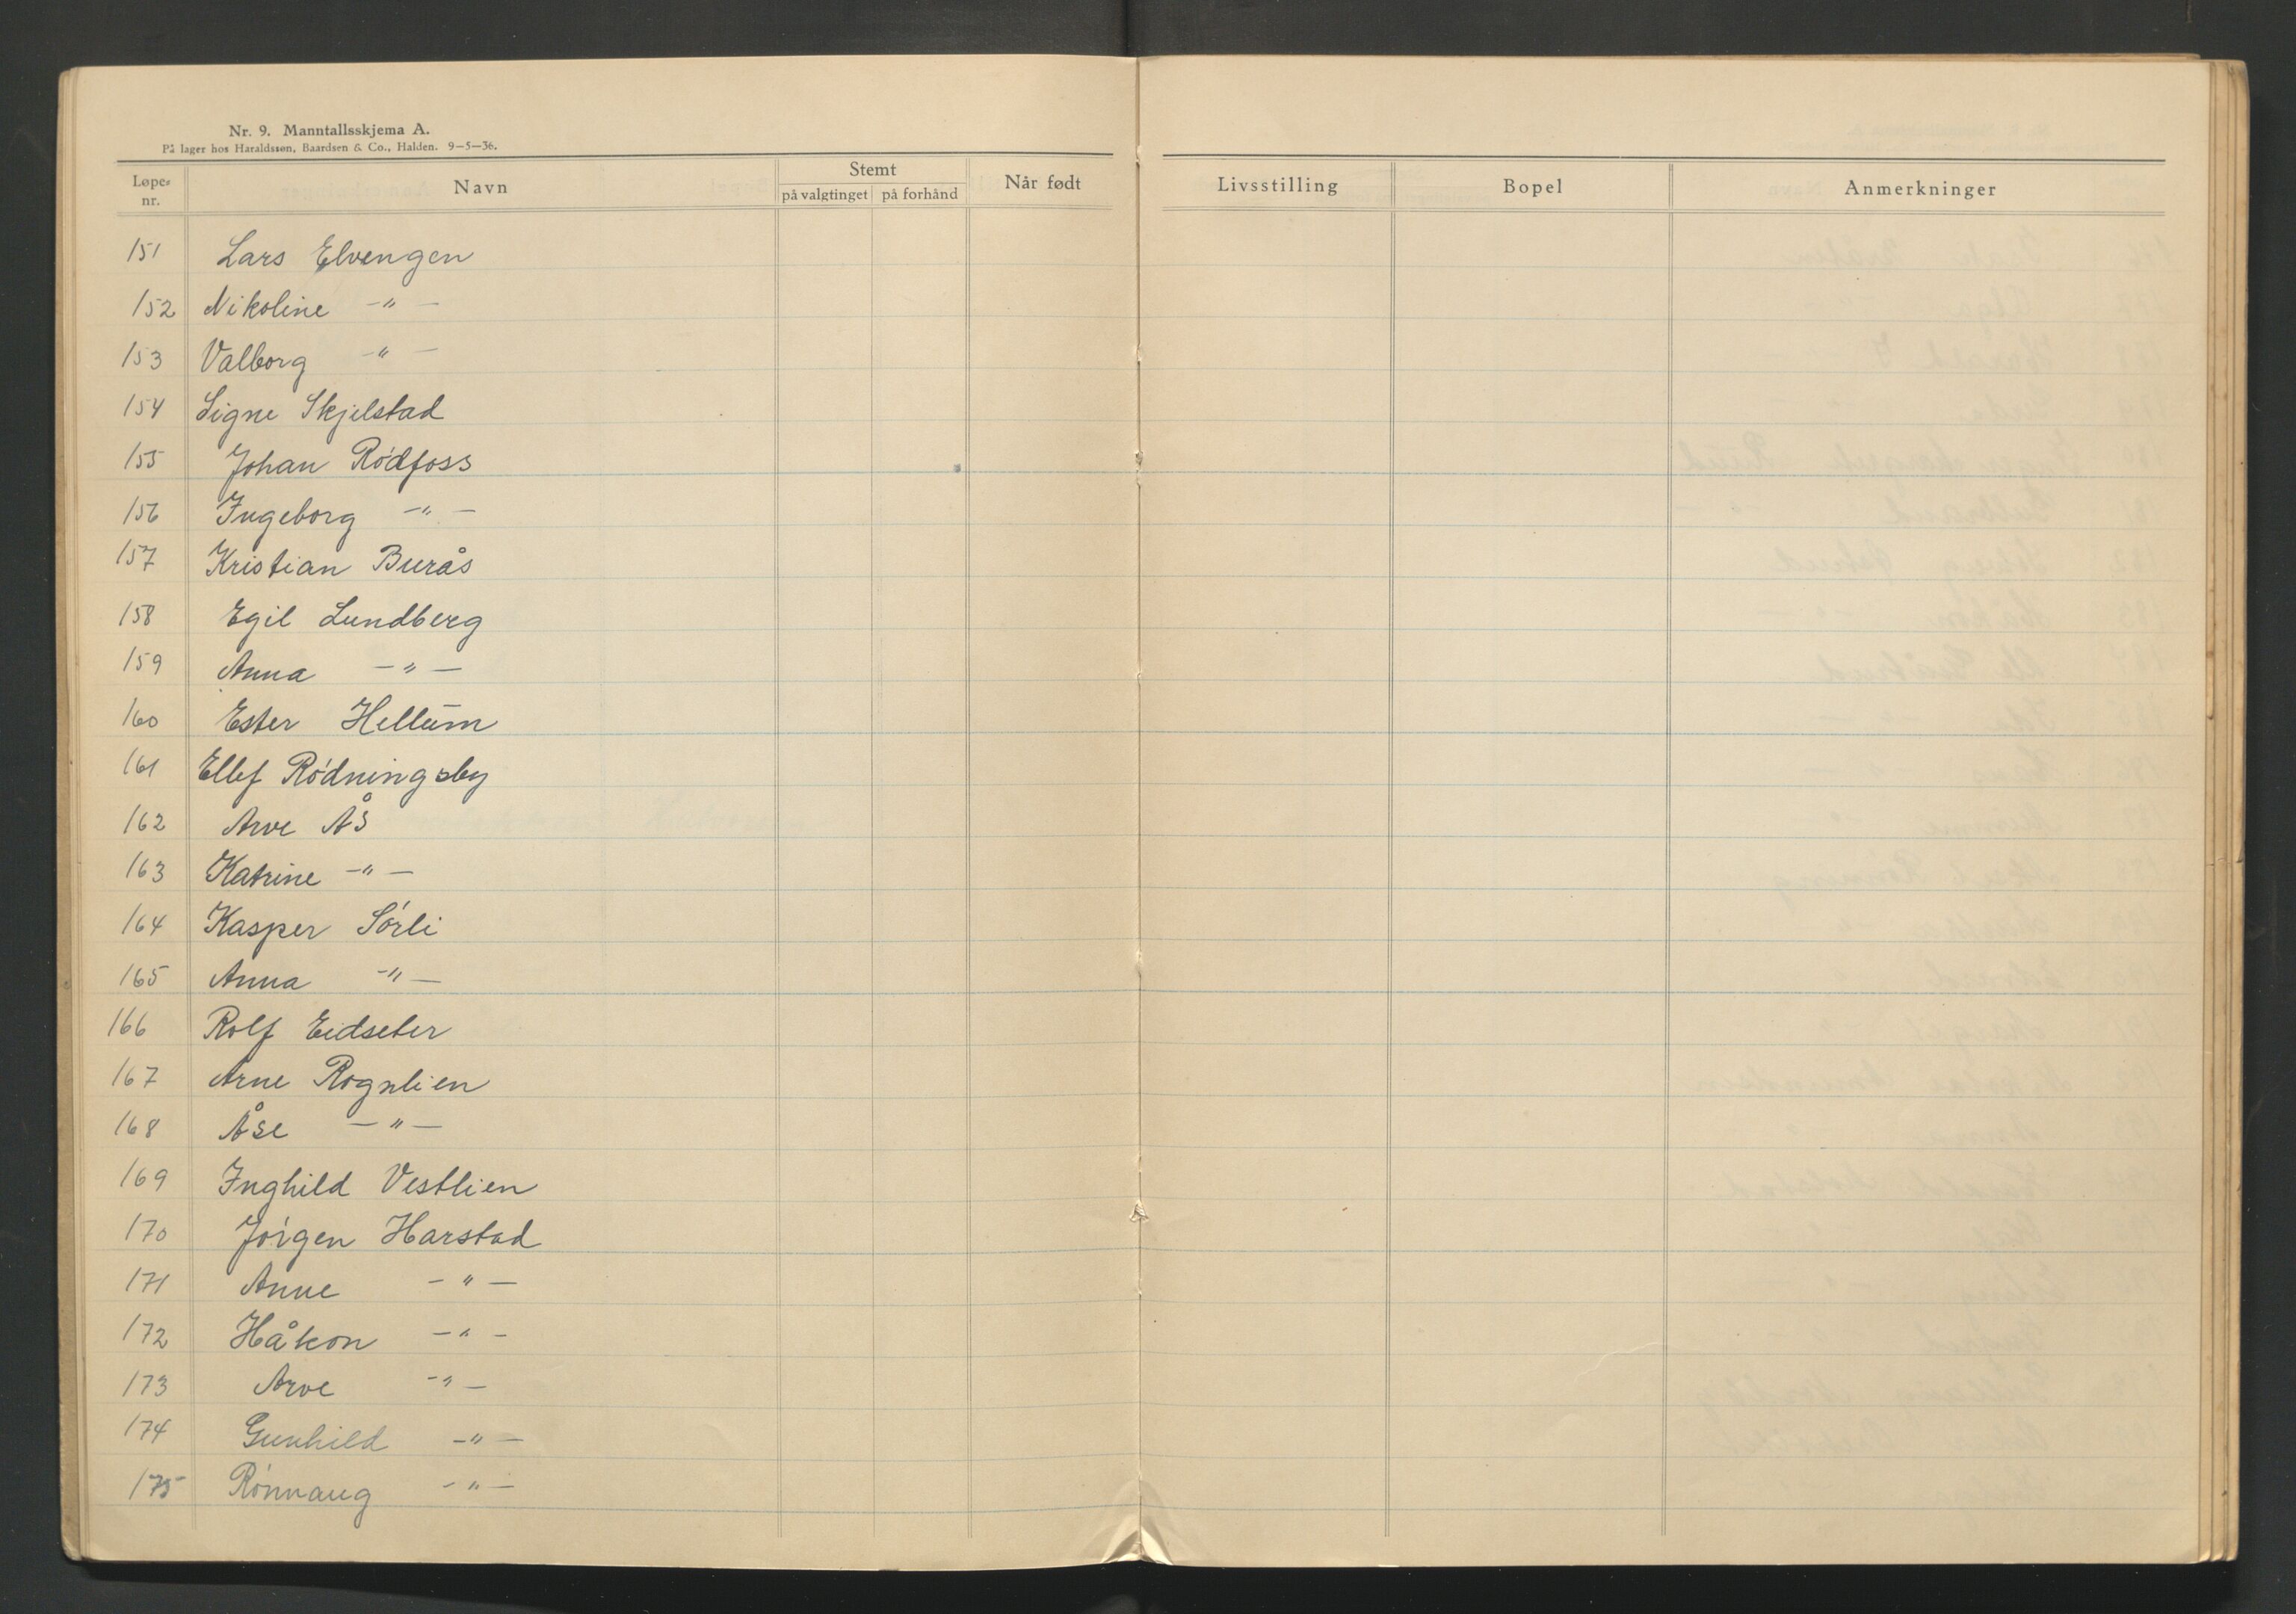 Nr. 9. Manntallsskjema A.
På lager hos Haraldssøn, Baardsen & Co., Halden. 9—5—36.
Løpenr. Navn Stemt på valgtinget på forhånd Når født Livsstilling Bopel Anmerkninger
151 Lars Elvengen
152 Nikoline —"—
153 Valborg —"—
154 Signe Skjelstad
155 Johan Rødfoss
156 Ingeborg —"—
157 Kristian Burås
158 Egil Lundberg
159 Anna —"—
160 Ester Hellum
161 Ellef Rødningsby
162 Arve Ås
163 Katrine —"—
164 Kasper Sørli
165 Anna —"—
166 Rolf Eidseter
167 Arne Rognlien
168 Åse —"—
169 Inghild Vestlien
170 Jørgen Harstad
171 Anne —"—
172 Håkon —"—
173 Arve —"—
174 Gunhild —"—
175 Rønnaug —"—